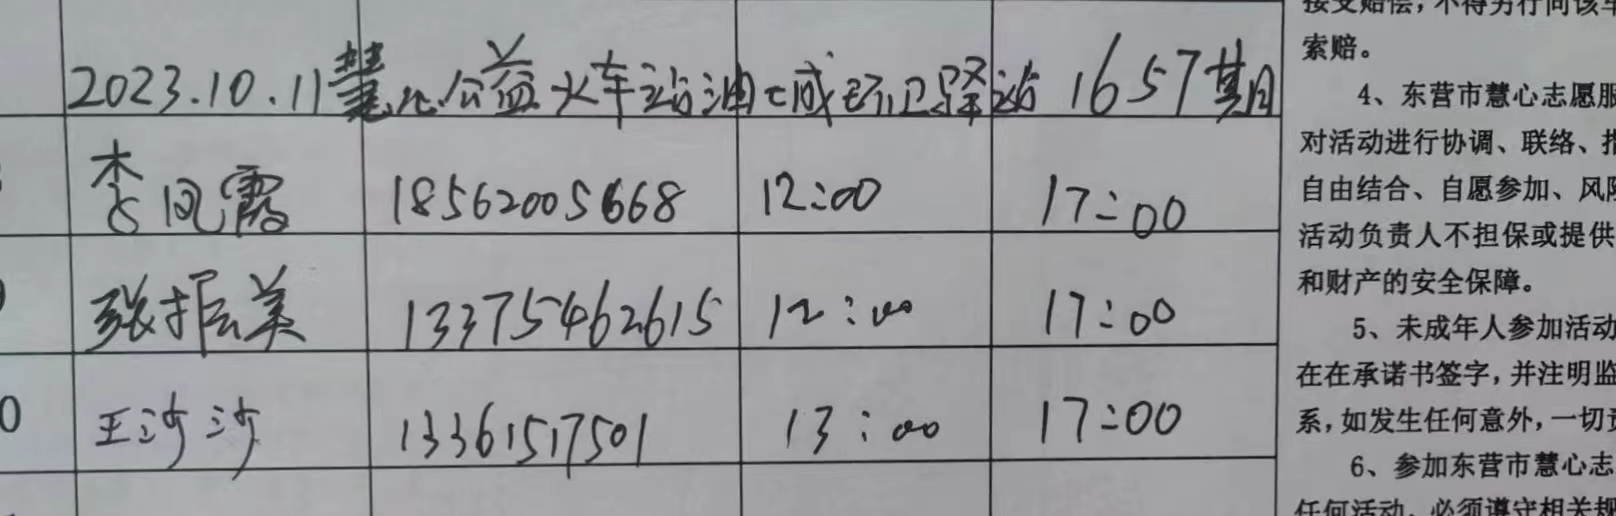 2023.10.11慧心公益火车站油城环卫驿站1657期
李凤霞 18562005668 12:00 17:00
张振美 13375462615 12:00 17:00
0 王沙沙 13361517501 13:00 17:00
接受赔偿，不得另行向该车
索赔。
4、东营市慧心志愿服
对活动进行协调、联络、指
自由结合、自愿参加、风险
活动负责人不担保或提供
和财产的安全保障。
5、未成年人参加活动
在在承诺书签字，并注明监
系，如发生任何意外，一切责
6、参加东营市慧心志
任何活动，必须遵守相关规